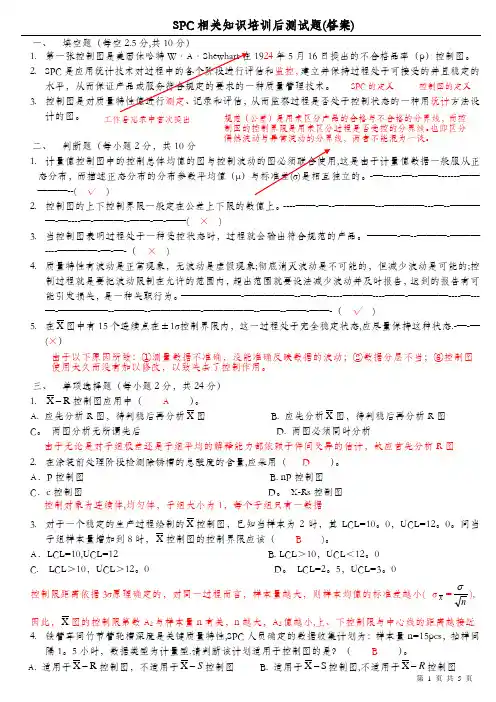 SPC相关知识培训后测试题(答案)
一、 填空题（每空2.5分,共10分）
1. 第一张控制图是美国休哈特W·A·Shewhart在1924年5月16日提出的不合格品率（p）控制图。
2. SPC是应用统计技术对过程中的各个阶段进行评估和监控,建立并保持过程处于可接受的并且稳定的
水平，从而保证产品或服务符合规定的要求的一种质量管理技术。 SPC的定义 控制图的定义
3. 控制图是对质量特性值进行测定、记录和评估，从而监察过程是否处于控制状态的一种用统计方法设
计的图。
工作备忘录中首次提出
规范（公差）是用来区分产品的合格与不合格的分界线，而控
制图的控制界限是用来区分过程是否受控的分界线。也即区分
偶然波动与异常波动的分界线，两者不能混为一谈。
二、 判断题（每小题2分，共10分
1. 计量值控制图中的控制总体均值的图与控制波动的图必须联合使用,这是由于计量值数据一般服从正
态分布，而描述正态分布的分布参数平均值（μ）与标准差(σ)是相互独立的。
( √ )
2. 控制图的上下控制界限一般定在公差上下限的数值上。
( × )
3. 当控制图表明过程处于一种受控状态时，过程就会输出符合规范的产品。
( × )
4. 质量特性有波动是正常现象，无波动是虚假现象;彻底消灭波动是不可能的，但减少波动是可能的;控
制过程就是要把波动限制在允许的范围内，超出范围就要设法减少波动并及时报告，达到的报告有可
能引发损失，是一种失职行为。
( √ )
5. 在X̄图中有15个连续点在±1σ控制界限内，这一过程处于完全稳定状态,应尽量保持这种状态.
(×)
由于以下原因所致：①测量数据不准确，没能准确反映数据的波动；②数据分层不当；③控制图
使用太久而没有加以修改，以致失去了控制作用。
三、 单项选择题（每小题2分，共24分）
1. X̄-R控制图应用中（ A ）。
A. 应先分析R图，待判稳后再分析X̄图 B. 应先分析X̄图，待判稳后再分析R图
C。 两图分析无所谓先后 D. 两图必须同时分析
由于无论是对子组极差还是子组平均的解释能力都依赖于件间变异的估计，故应首先分析R图
2. 在涂装前处理阶段检测除锈槽的总酸度的含量,应采用（ D ）。
A．p控制图 B. np控制图
C．c控制图 D。 X-Rs控制图
控制对象为连续体,均匀体，子组大小为1，每个子组只有一数据
3. 对于一个稳定的生产过程绘制的X̄控制图，已知当样本为2时，其LCL=10。0，UCL=12。0。问当
子组样本量增加到8时，X̄控制图的控制界限应该（ B ）。
A．LCL=10,UCL=12 B. LCL＞10，UCL＜12。0
C. LCL＞10，UCL＞12。0 D。 LCL=2。5，UCL=3。0
控制限距离依据3σ原理确定的，对同一过程而言，样本量越大，则样本均值的标准差越小( σX̄=σ/√n ),
因此，X̄图的控制限系数A₂与样本量n有关，n越大，A₂值越小,上、下控制限与中心线的距离越接近
4. 铁管车间竹节管轮槽深度是关键质量特性,SPC人员确定的数据收集计划为：样本量n=15pcs，抽样间
隔1。5小时，数据类型为计量型.请判断该计划适用于控制图的是？（ B ）。
A. 适用于X̄-R控制图，不适用于X̄-S控制图 B. 适用于X̄-S控制图,不适用于X̄-R控制图
第 1 页 共 5 页